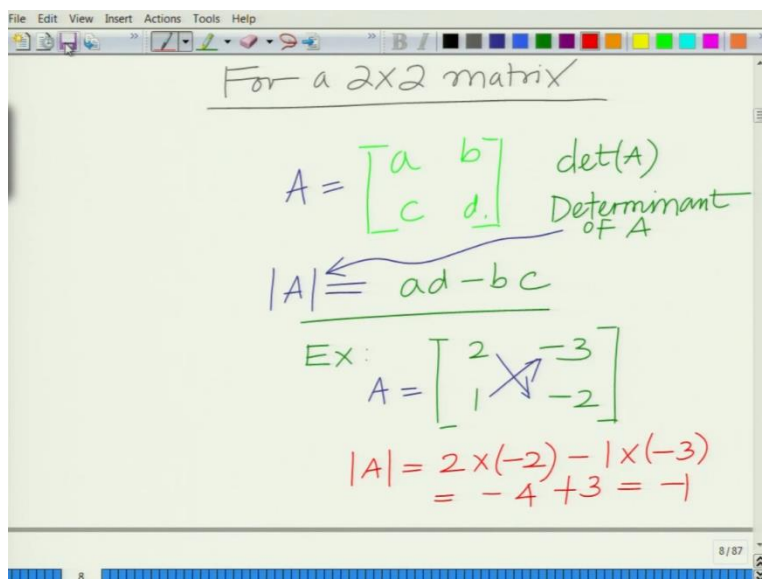 File Edit View Insert Actions Tools Help
B I
For a 2x2 matrix
A = [a b
c d.]
det(A)
Determinant
OF A
|A| = ad - bc
Ex:
A = [2 -3
1 -2]
|A| = 2 x (-2) - 1 x (-3)
= -4 + 3 = -1
8/87
8